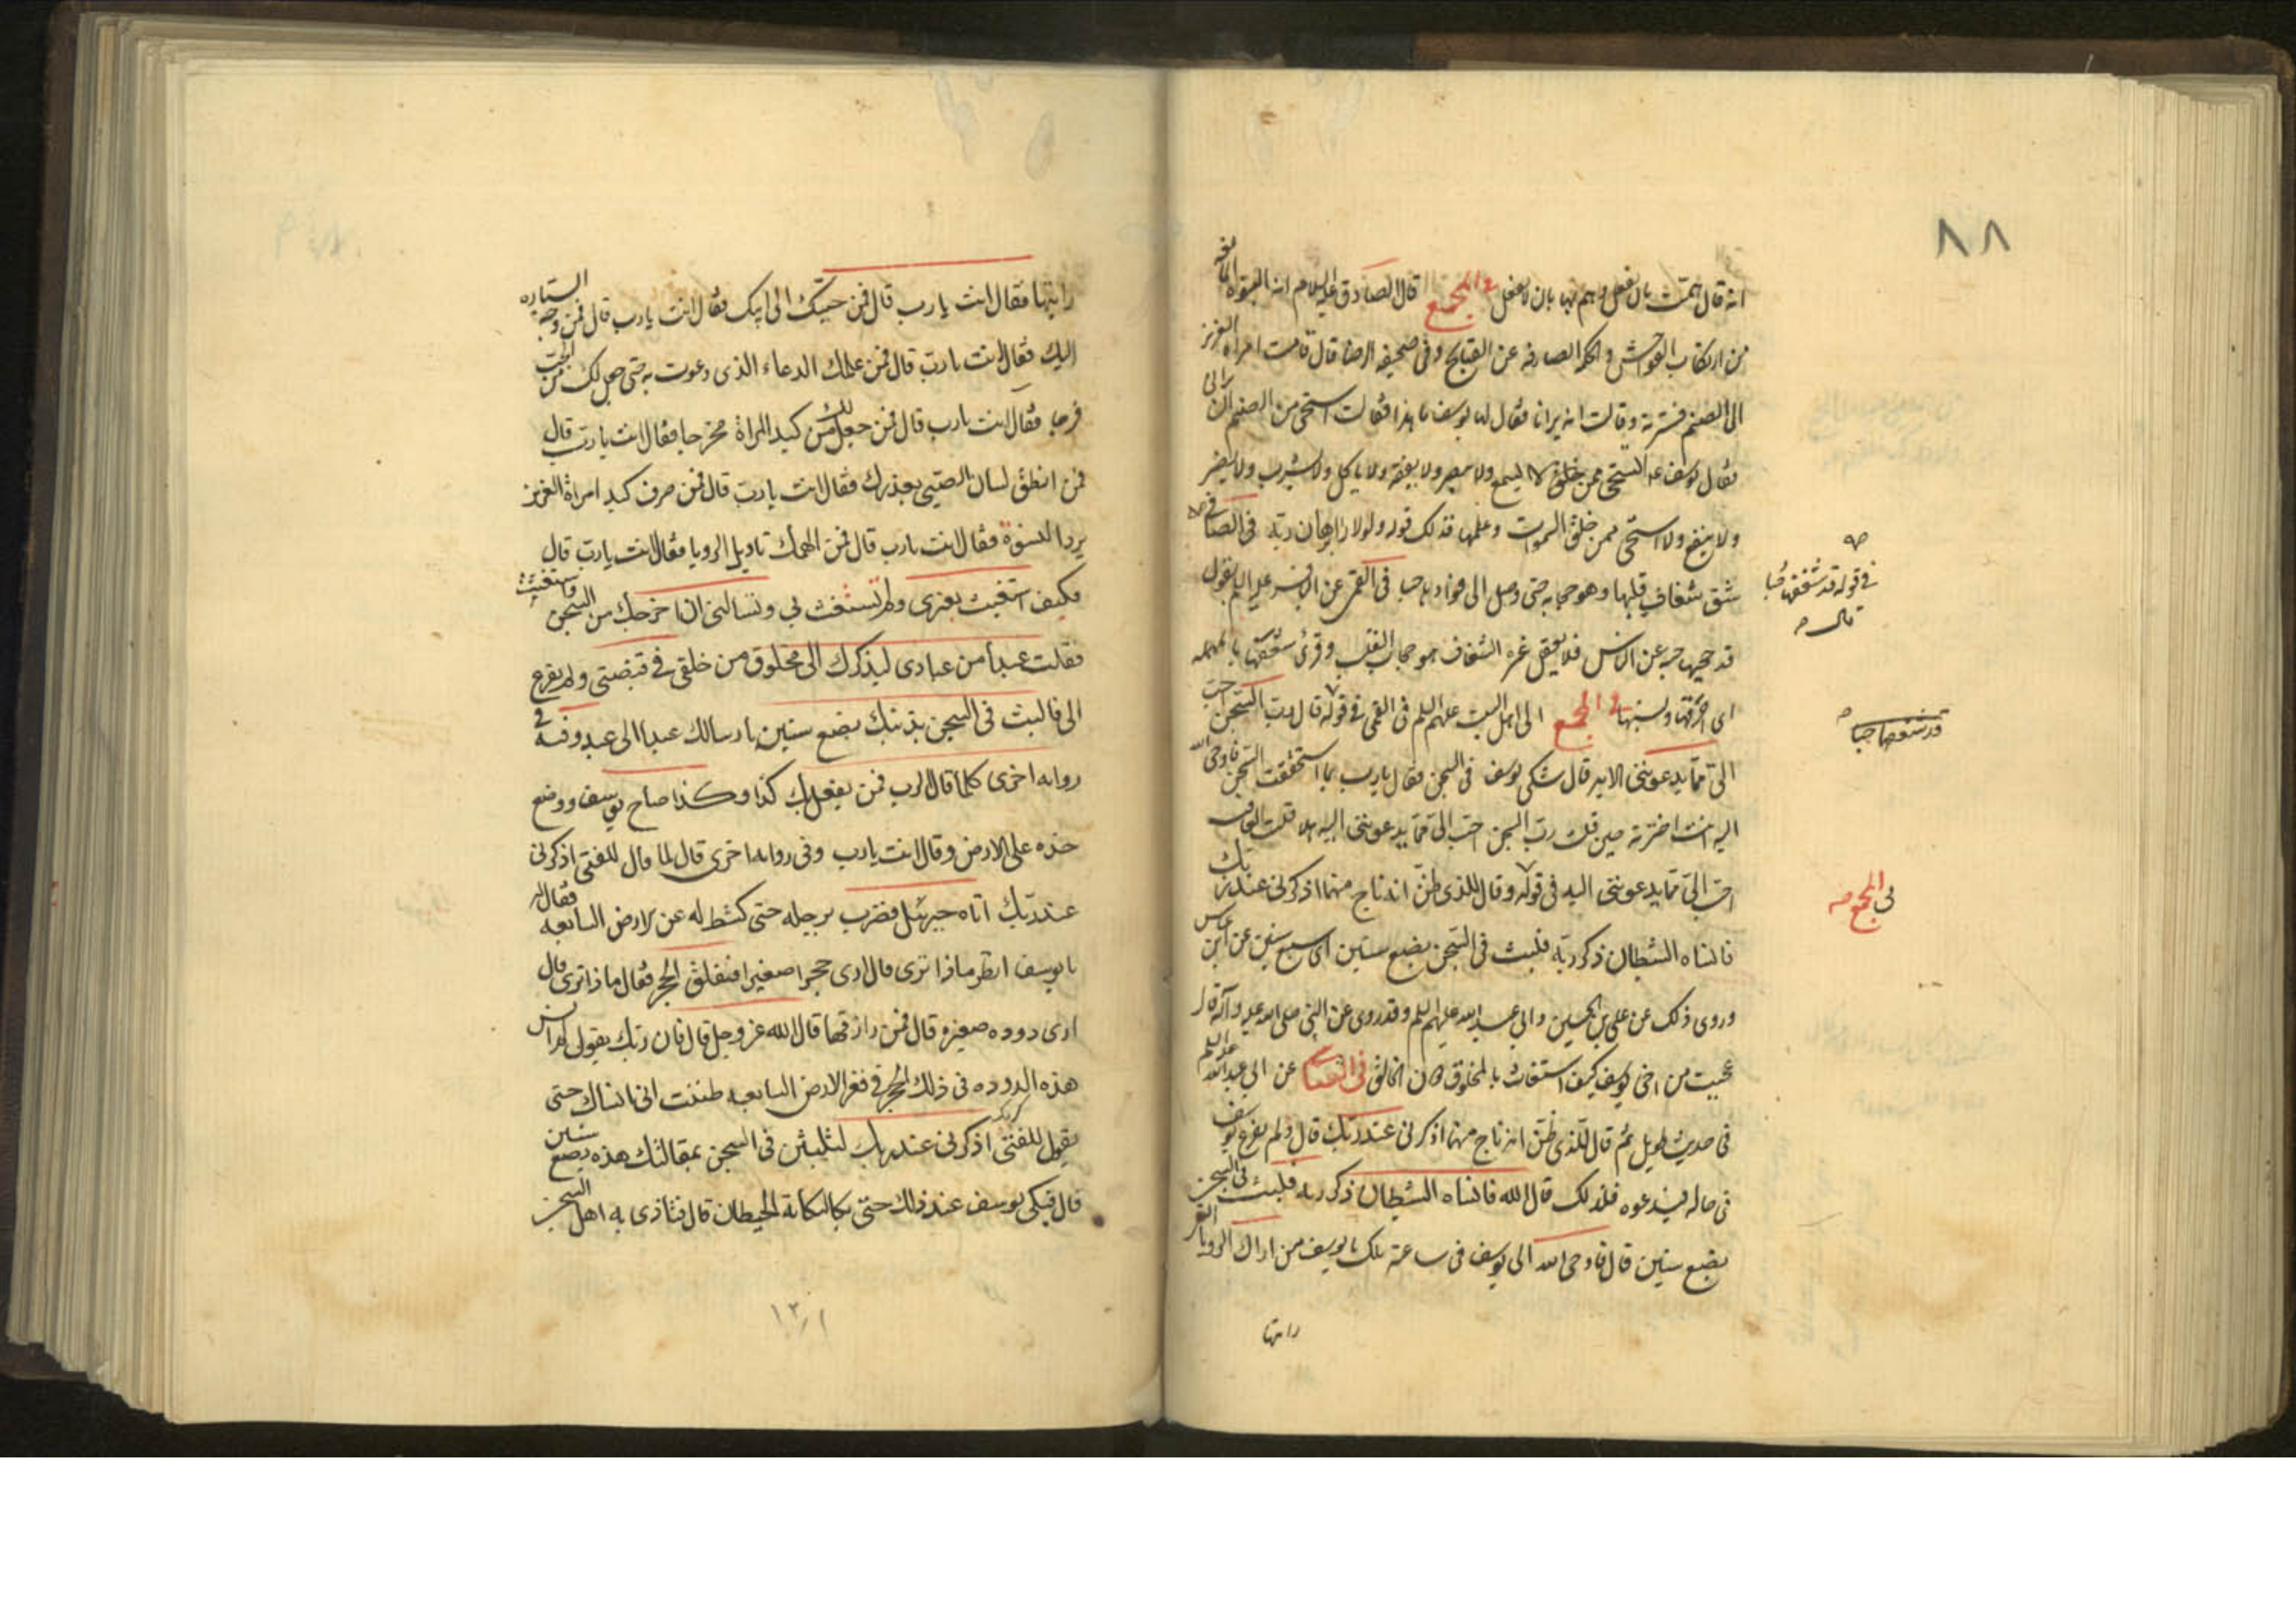 ٨٨
انه قال همت بان تفعل وهم بها بان لا يفعل في المجمع قال الصادق عليه السلام انه النبوة المانعة
من ارتكاب الفواحش والحكمة الصارفة عن القبايح وفي صحيفة الرضا قال قامت امراة العزيز
الى الصنم فسترته وقالت انه يرانا فقال لها يوسف ما هذا فقالت استحى من الصنم ان يرانى
فقال يوسف اتستحى ممن لا يسمع ولا يبصر ولا يفقه ولا ياكل ولا يشرب ولا يضر
ولا ينفع ولا استحى ممن خلق السموات وعلمها فذلك قوله ولولا ان راى برهان ربه في الصافى
شق شغاف قلبها وهو حجابه حتى وصل الى فؤادها حبا في القمى عن الباقر عليه السلم يقول
قد حجبها حبه عن الناس فلا تعقل غيره الشغاف هو حجاب القلب وقرئ شعفها بالمهملة
اى احرقها في المجمع الى اهل البيت عليهم السلم في القمى في قوله قال رب السجن احب
الىّ مما يدعوننى الاية قال شكى يوسف في السجن فقال يا رب بما استحققت السجن فاوحى الله
اليه انت اخترته حين قلت رب السجن احب الىّ مما يدعوننى اليه هلا قلت العافية
احب الىّ مما يدعوننى اليه في قوله وقال للذى ظنّ انه ناج منهما اذكرنى عند ربك
فانساه الشيطان ذكر ربه فلبث في السجن بضع سنين اى سبع سنين عن ابن عباس
وروى ذلك عن على بن الحسين وابى عبد الله عليهم السلم وقد روى عن النبى صلى الله عليه وآله قال
عجبت من اخى يوسف كيف استغاث بالمخلوق دون الخالق في الصافى عن ابى عبد الله عليه السلم
في حديث طويل ثم قال للذى ظنّ انه ناج منهما اذكرنى عند ربك قال ولم يفزع يوسف
في حاله فيدعوه فلذلك قال الله فانساه الشيطان ذكر ربه فلبث في السجن
بضع سنين قال فاوحى الله الى يوسف في ساعته تلك يا يوسف من اراك الرويا التى
رايتها
في قوله قد شغفها حبا
قال
قد شغفها حبا
في المجمع
رايتها فقال انت يا رب قال فمن حببك الى ابيك فقال انت يا رب قال فمن وجه السيارة
اليك فقال انت يا رب قال فمن علمك الدعاء الذى دعوت به حتى جعل لك من الجب
فرجا فقال انت يا رب قال فمن جعل لك من كيد المراة مخرجا فقال انت يا رب قال
فمن انطق لسان الصبى بعذرك فقال انت يا رب قال فمن صرف كيد امراة العزيز
يردا النسوة فقال انت يا رب قال فمن الهمك تاويل الرويا فقال انت يا رب قال
فكيف استغيث بغيرى ولم تستغث بى وتسالنى ان اخرجك من السجن واستغيث
فقلت عبدا من عبادى ليذكرك الى مخلوق من خلقى في قبضتى ولم يفزع
الى فالبث في السجن بذنبك بضع سنين بارسالك عبدا الى عبد وفيه في
رواية اخرى كلما قال الرب فمن يفعل بك كذا وكذا صاح يوسف ووضع
خده على الارض وقال انت يا رب وفي رواية اخرى قال لما قال للفتى اذكرنى
عند ربك اتاه جبرئيل فضرب برجله حتى كشط له عن الارض السابعة فقال له
يا يوسف انظر ماذا ترى قال ارى حجرا صغيرا ففلق الحجر فقال ماذا ترى قال
ارى دودة صغيرة قال فمن رازقها قال الله عز وجل قال فان ربك يقول لم انس
هذه الدودة في ذلك الحجر في قعر الارض السابعة ظننت انى انساك حتى
يقول للفتى اذكرنى عند ربك لتلبثن في السجن بمقالتك هذه بضع سنين
قال فبكى يوسف عند ذلك حتى بكا لبكائه الحيطان قال فتاذى به اهل السجن